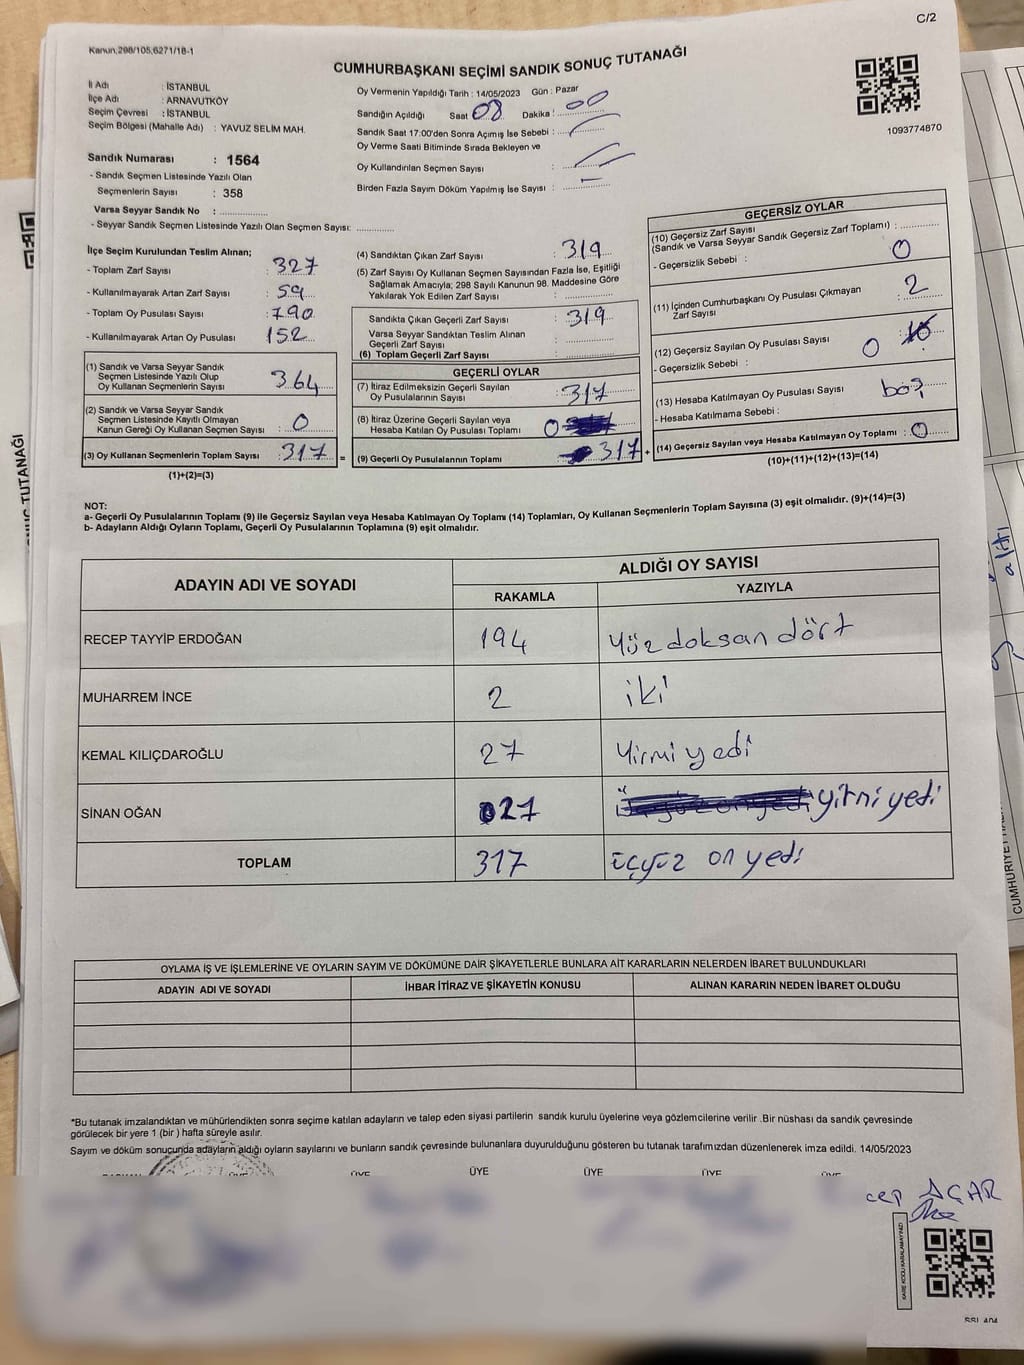 C/2
Kanun,298/105,6271/18-1
CUMHURBAŞKANI SEÇİMİ SANDIK SONUÇ TUTANAĞI
İl Adı : İSTANBUL
İlçe Adı : ARNAVUTKÖY
Seçim Çevresi : İSTANBUL
Seçim Bölgesi (Mahalle Adı) : YAVUZ SELİM MAH.
Sandık Numarası : 1564
- Sandık Seçmen Listesinde Yazılı Olan
Seçmenlerin Sayısı : 358
Varsa Seyyar Sandık No : ................
- Seyyar Sandık Seçmen Listesinde Yazılı Olan Seçmen Sayısı: ................
Oy Vermenin Yapıldığı Tarih : 14/05/2023 Gün : Pazar
Sandığın Açıldığı Saat 08 Dakika : 00
Sandık Saat 17:00'den Sonra Açımış İse Sebebi :
Oy Verme Saati Bitiminde Sırada Bekleyen ve
Oy Kullandırılan Seçmen Sayısı :
Birden Fazla Sayım Döküm Yapılmış İse Sayısı : -
1093774870
İlçe Seçim Kurulundan Teslim Alınan;
- Toplam Zarf Sayısı : 327
- Kullanılmayarak Artan Zarf Sayısı : 59
- Toplam Oy Pusulası Sayısı : 790
- Kullanılmayarak Artan Oy Pusulası : 152
(1) Sandık ve Varsa Seyyar Sandık
Seçmen Listesinde Yazılı Olup
Oy Kullanan Seçmenlerin Sayısı : 364
(2) Sandık ve Varsa Seyyar Sandık
Seçmen Listesinde Kayıtlı Olmayan
Kanun Gereği Oy Kullanan Seçmen Sayısı : 0
(3) Oy Kullanan Seçmenlerin Toplam Sayısı : 317 =
(1)+(2)=(3)
(4) Sandıktan Çıkan Zarf Sayısı : 319
(5) Zarf Sayısı Oy Kullanan Seçmen Sayısından Fazla İse, Eşitliği
Sağlamak Amacıyla; 298 Sayılı Kanunun 98. Maddesine Göre
Yakılarak Yok Edilen Zarf Sayısı :
Sandıkta Çıkan Geçerli Zarf Sayısı : 319
Varsa Seyyar Sandıktan Teslim Alınan
Geçerli Zarf Sayısı :
(6) Toplam Geçerli Zarf Sayısı :
GEÇERLİ OYLAR
(7) İtiraz Edilmeksizin Geçerli Sayılan
Oy Pusulalarının Sayısı : 317
(8) İtiraz Üzerine Geçerli Sayılan veya
Hesaba Katılan Oy Pusulası Toplamı : 0
(9) Geçerli Oy Pusulalarının Toplamı : 317 +
GEÇERSİZ OYLAR
(10) Geçersiz Zarf Sayısı
(Sandık ve Varsa Seyyar Sandık Geçersiz Zarf Toplamı) :
- Geçersizlik Sebebi : 0
(11) İçinden Cumhurbaşkanı Oy Pusulası Çıkmayan
Zarf Sayısı : 2
(12) Geçersiz Sayılan Oy Pusulası Sayısı : 0
- Geçersizlik Sebebi :
(13) Hesaba Katılmayan Oy Pusulası Sayısı : boş
- Hesaba Katılmama Sebebi :
(14) Geçersiz Sayılan veya Hesaba Katılmayan Oy Toplamı : 0
(10)+(11)+(12)+(13)=(14)
NOT:
a- Geçerli Oy Pusulalarının Toplamı (9) ile Geçersiz Sayılan veya Hesaba Katılmayan Oy Toplamı (14) Toplamları, Oy Kullanan Seçmenlerin Toplam Sayısına (3) eşit olmalıdır. (9)+(14)=(3)
b- Adayların Aldığı Oyların Toplamı, Geçerli Oy Pusulalarının Toplamına (9) eşit olmalıdır.
ADAYIN ADI VE SOYADI
ALDIĞI OY SAYISI
RAKAMLA YAZIYLA
RECEP TAYYİP ERDOĞAN 194 Yüz doksan dört
MUHARREM İNCE 2 iki
KEMAL KILIÇDAROĞLU 27 Yirmi yedi
SİNAN OĞAN 027 yirmi yedi
TOPLAM 317 üçyüz on yedi
OYLAMA İŞ VE İŞLEMLERİNE VE OYLARIN SAYIM VE DÖKÜMÜNE DAİR ŞİKAYETLERLE BUNLARA AİT KARARLARIN NELERDEN İBARET BULUNDUKLARI
ADAYIN ADI VE SOYADI İHBAR İTİRAZ VE ŞİKAYETİN KONUSU ALINAN KARARIN NEDEN İBARET OLDUĞU
*Bu tutanak imzalandıktan ve mühürlendikten sonra seçime katılan adayların ve talep eden siyasi partilerin sandık kurulu üyelerine veya gözlemcilerine verilir .Bir nüshası da sandık çevresinde
görülecek bir yere 1 (bir ) hafta süreyle asılır.
Sayım ve döküm sonucunda adayların aldığı oyların sayılarını ve bunların sandık çevresinde bulunanlara duyurulduğunu gösteren bu tutanak tarafımızdan düzenlenerek imza edildi. 14/05/2023
ÜYE ÜYE ÜYE ÜYE ÜYE
cep AÇAR
KARE KODU KARALAMAYINIZ!